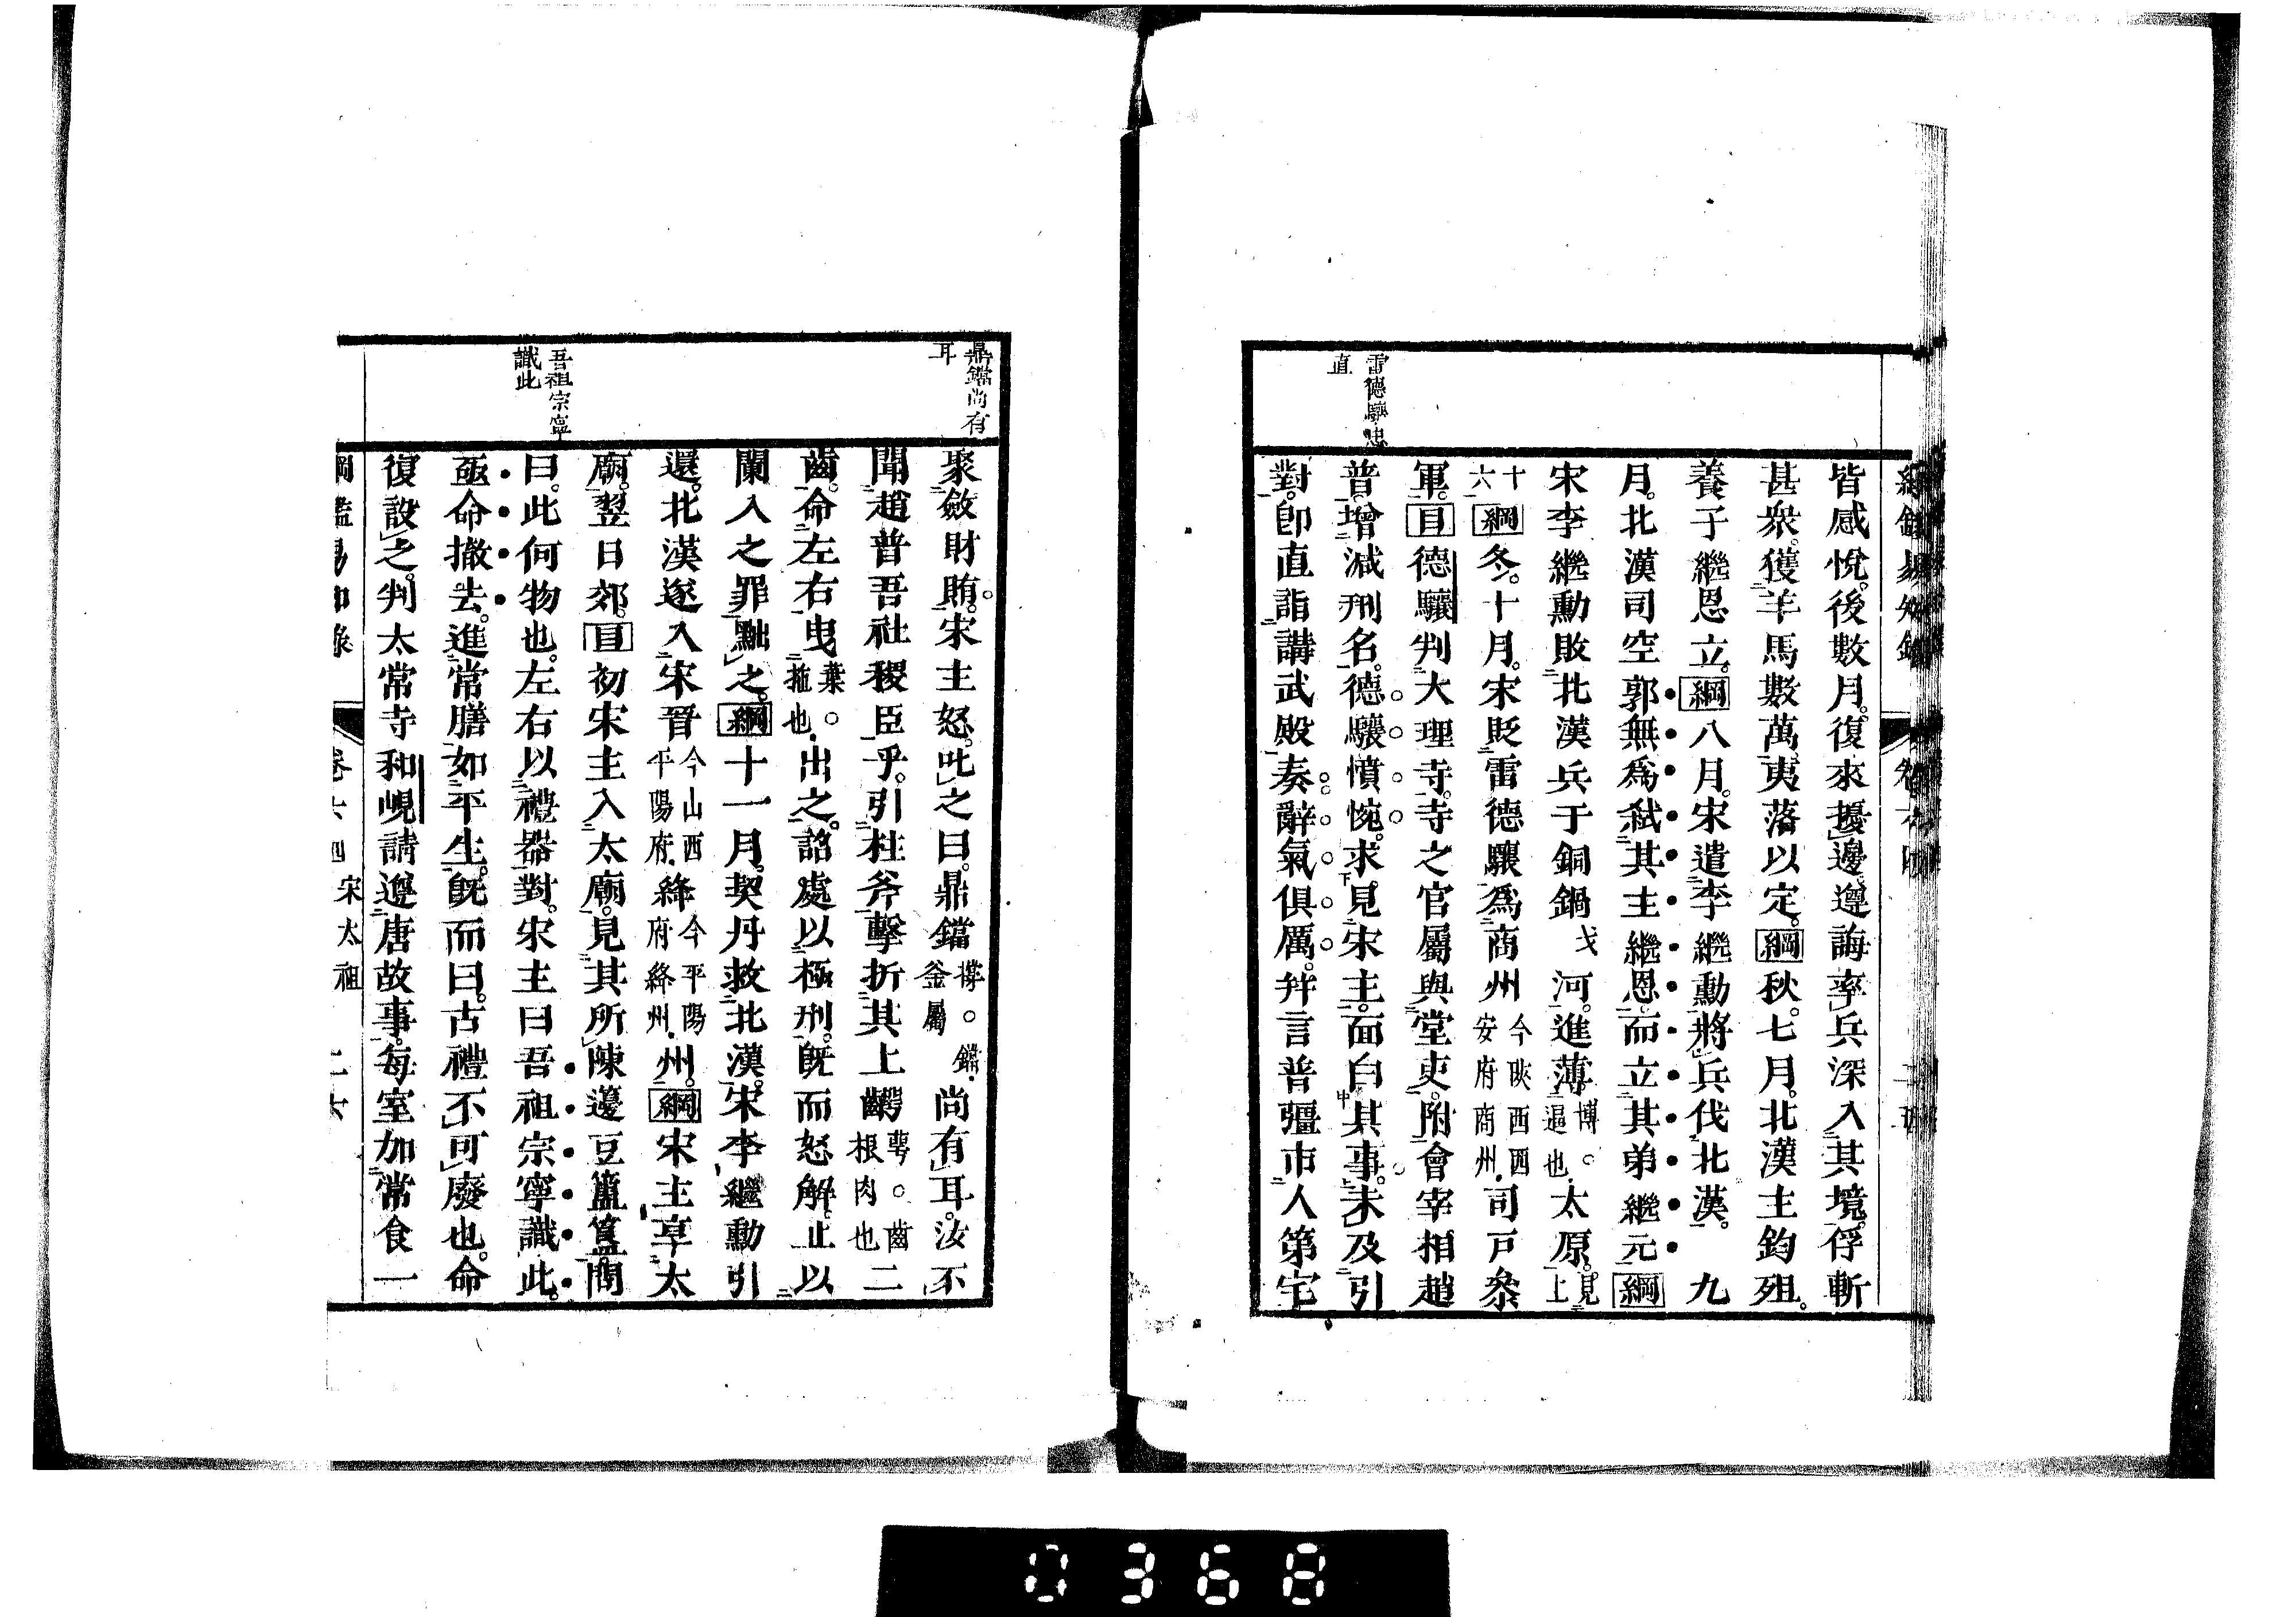 雷德驤忠
直
皆感悅。後數月。復來擾邊。遵誨率兵深入其境。俘斬
甚衆。獲羊馬數萬。夷落以定。綱秋。七月。北漢主鈞殂。
養子繼恩立。綱八月。宋遣李繼勳將兵伐北漢。九
月。北漢司空郭無爲弒其主繼恩而立其弟繼元。綱
宋李繼勳敗北漢兵于銅鍋戈河。進薄博。逼也。太原。見上
十六綱冬。十月。宋貶雷德驤爲商州今陝西西安府商州。司戸參
軍。目德驤判大理寺。寺之官屬與堂吏。附會宰相趙
普。增減刑名。德驤憤惋。求見宋主。面白其事。未及引
對。卽直詣講武殿奏。辭氣俱厲。幷言普彊市人第宅
鼎鐺尚有
耳
吾祖宗寧
識此
聚斂財賄。宋主怒。叱之曰。鼎鐺撐。鐺。釜屬尚有耳。汝不
聞趙普吾社稷臣乎。引柱斧擊折其上齶萼。齒根肉也二
齒。命左右曳葉。拖也。出之。詔處以極刑。旣而怒解。止以
闌入之罪黜之。綱十一月。契丹救北漢。宋李繼勳引
還。北漢遂入宋晉今山西平陽府。絳今平陽府絳州。州。綱宋主享太
廟。翌日郊。目初宋主入太廟。見其所陳籩豆簠簋。問
曰。此何物也。左右以禮器對。宋主曰吾祖宗寧識此。
亟命撤去。進常膳如平生。旣而曰。古禮不可廢也。命
復設之。判太常寺和峴請遵唐故事。每室加常食一
綱鑑易知錄　卷六四　宋太祖　二六